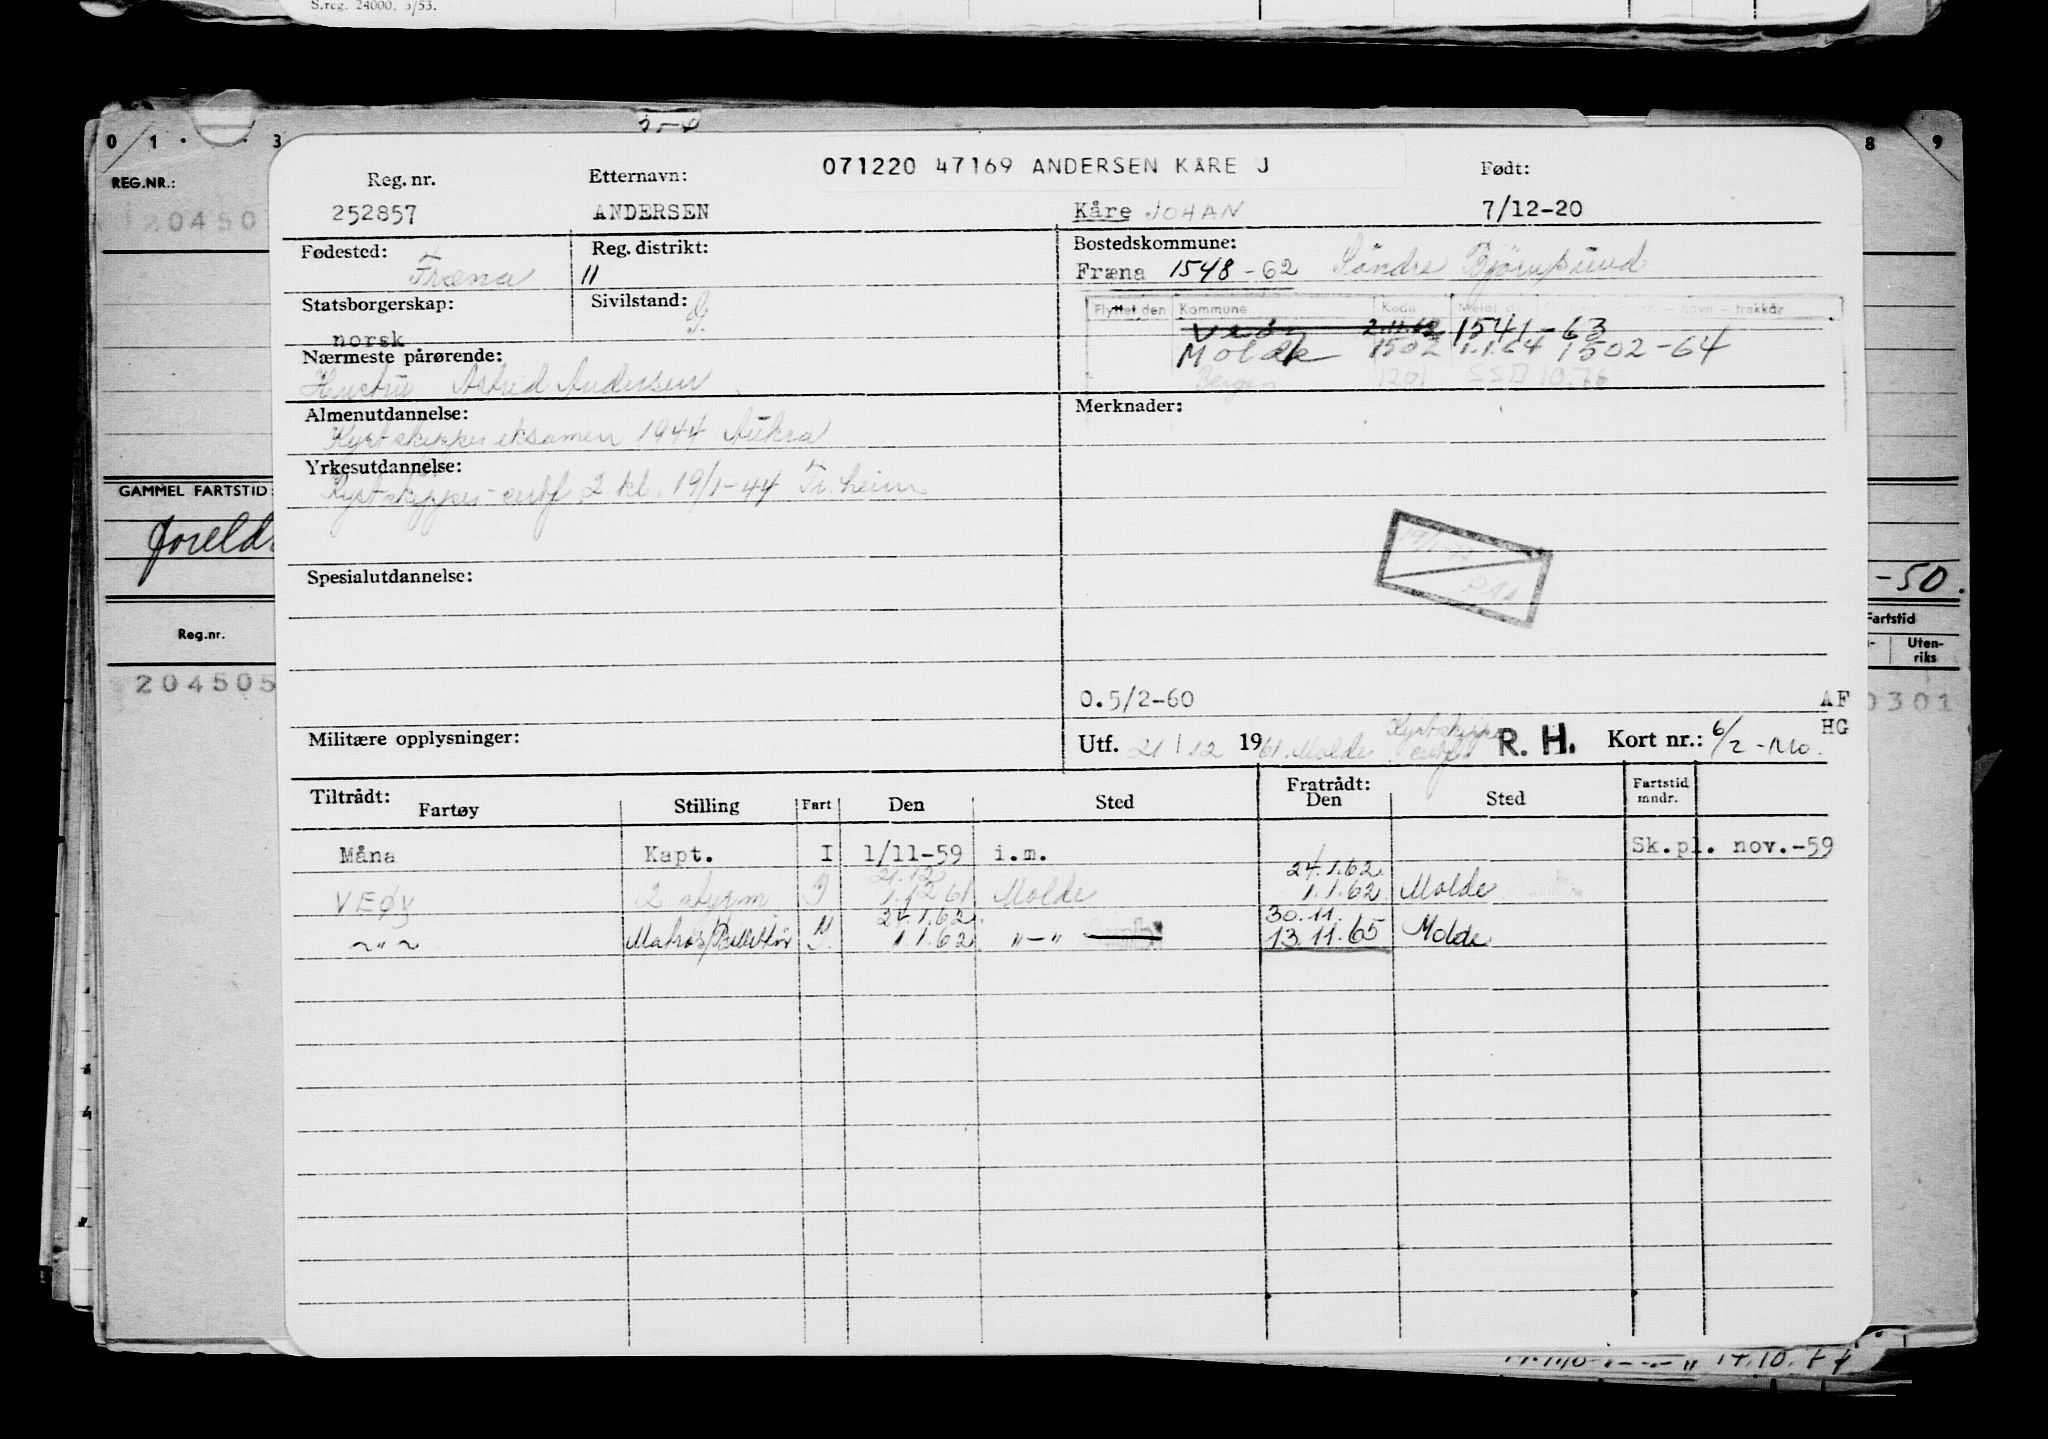 S.reg. 24000. 5/53.
0 1 3
8 9
REG.NR.:
204505
071220 47169 ANDERSEN KÅRE J
Reg. nr. Etternavn: Født:
252857 ANDERSEN Kåre JOHAN 7/12-20
Fødested: Fræna
Reg. distrikt: 11
Bostedskommune:
Fræna 1548-62 Söndre Björnsund
Statsborgerskap: norsk
Sivilstand: G.
Flyttet den Kommune Kode - navn - trekkår
Veøy 2.11.62 1541-63
Molde 1502 1.1.64 1502-64
Bergen 1201 SSB 10.76
Nærmeste pårørende:
Hustru Astrid Andersen
Almenutdannelse:
Kystskippereksamen 1944 Aukra
Merknader:
Yrkesutdannelse:
Kystskipper-sertf 2 kl. 19/1-44 Tr.heim
GAMMEL FARTSTID:
-50.
Spesialutdannelse:
Reg.nr.
204505
Fartstid
Uten-
riks
0301
O.5/2-60 AF
HG
Militære opplysninger:
Utf. 21/12 1961. Molde Kystskipper sertf. R. H. Kort nr.: 6/2-Mo.
Tiltrådt: Fratrådt:
Fartøy Stilling Fart Den Sted Den Sted Fartstid mndr.
Måna Kapt. I 1/11-59 i.m. Sk.pl. nov.-59
21.12 24.1.62.
VEØY 2 styrm I 1.12 61 Molde 1.1.62 Molde
24.1.62. 30.11.
~"~ Matros/Billettør " I. 1.1.62. "-" 13.11.65 Molde
14.10.